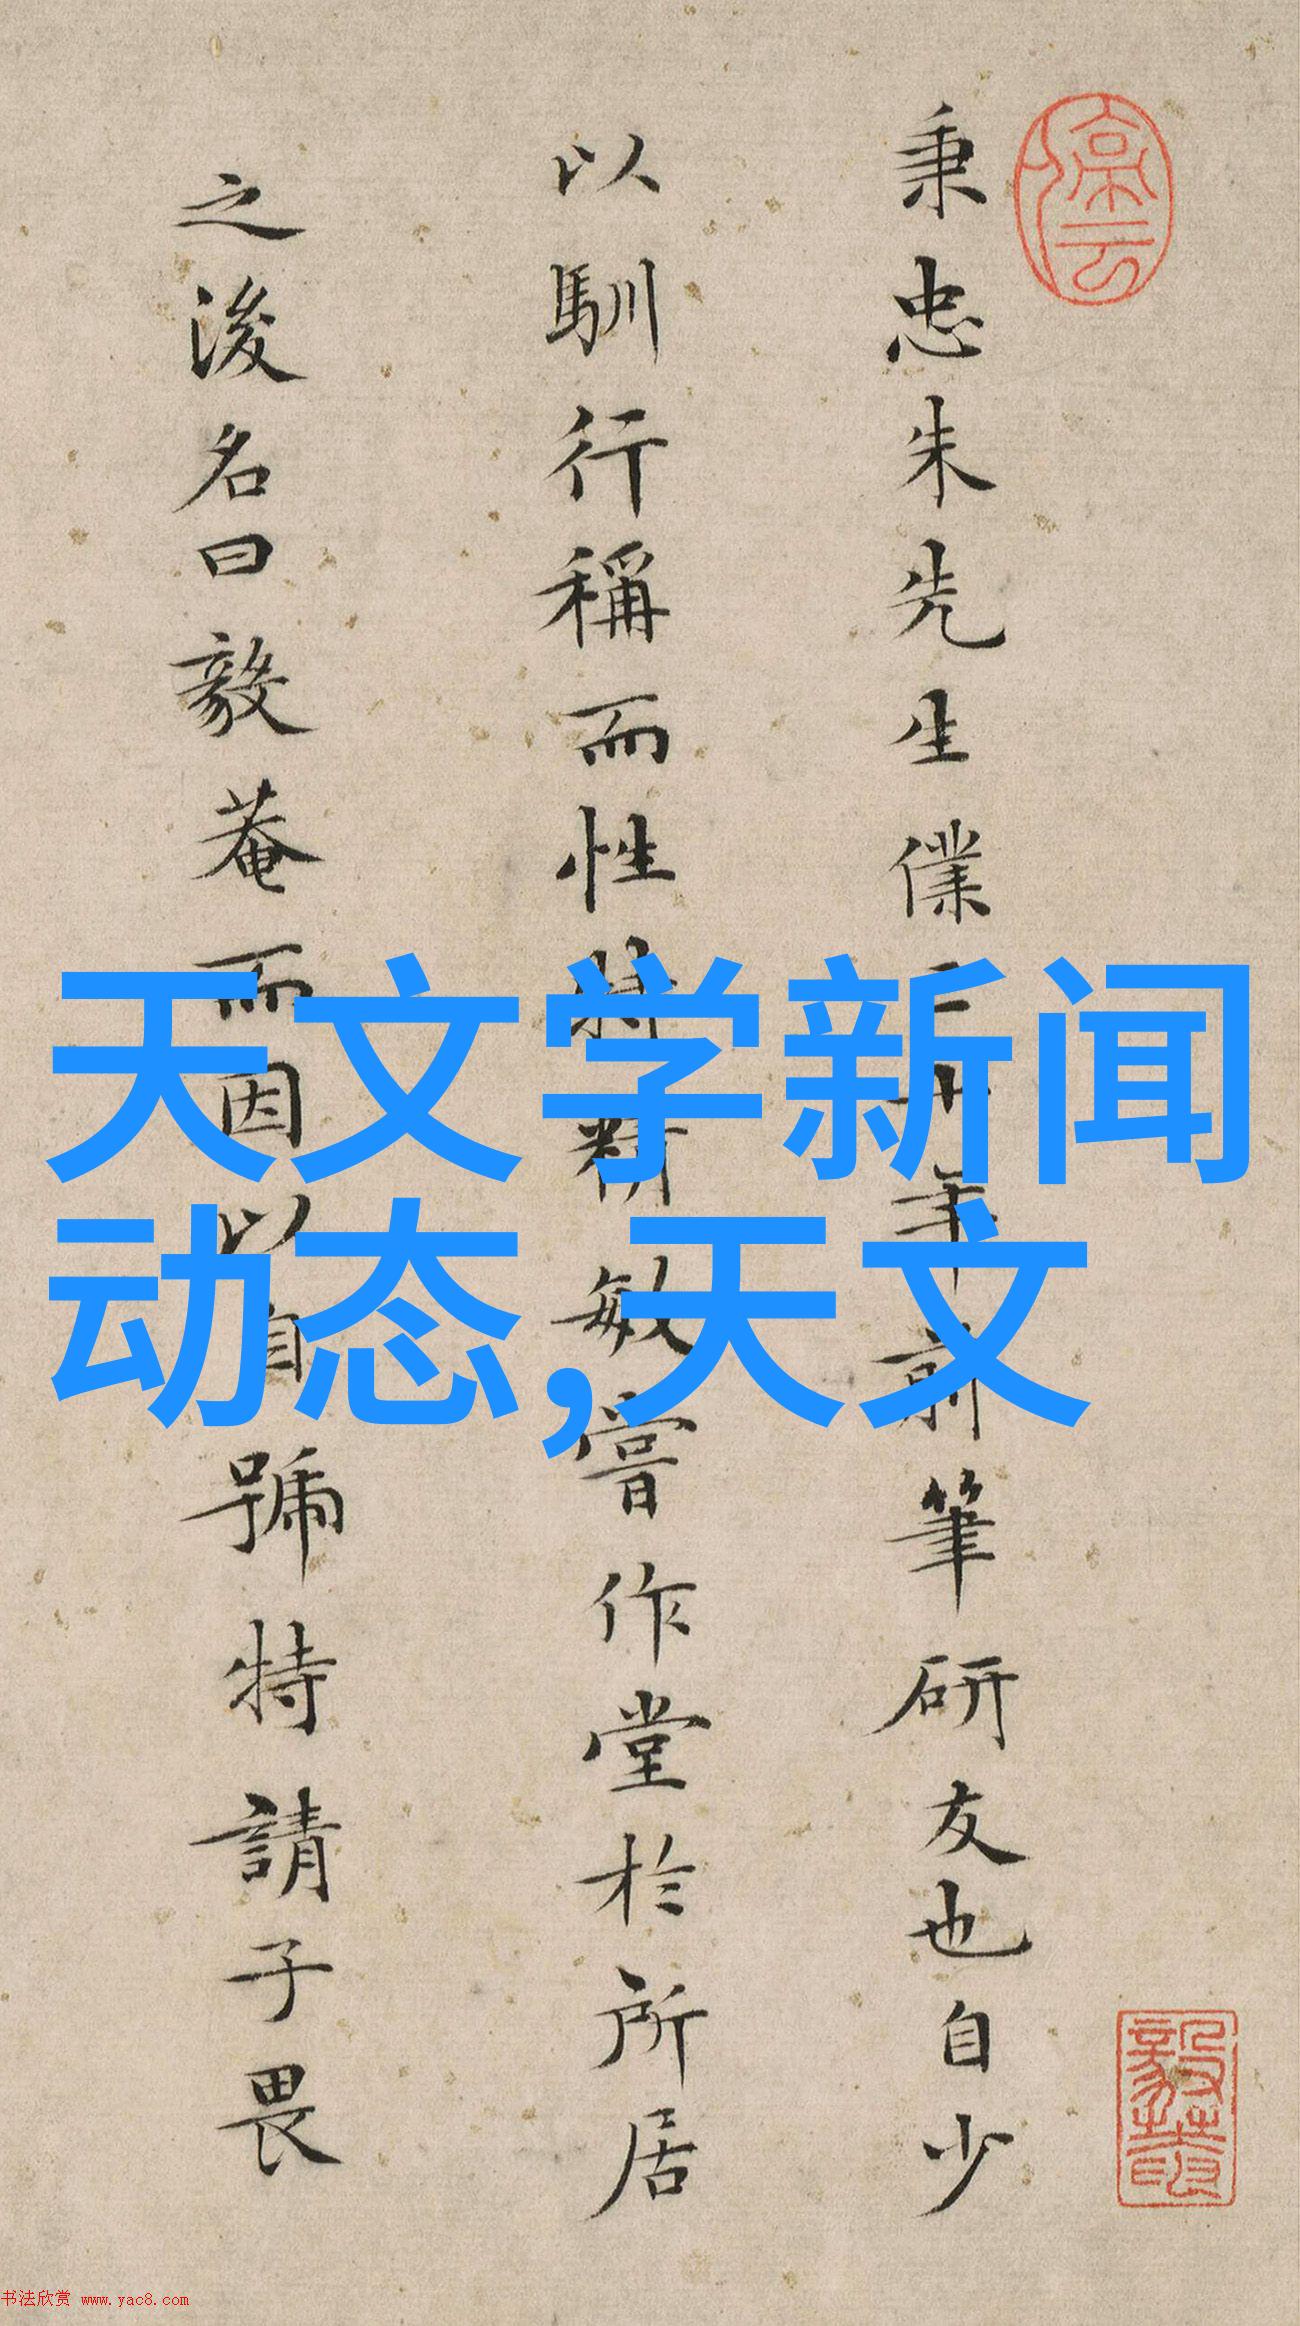 秉忠朱先生僕二十年前筆研友也自少
以馴行稱而性特精敏嘗作堂於所居
之後名曰毅菴而因以自號特請子畏
天文学新闻
动态,天文
書法欣赏 www.yac8.com